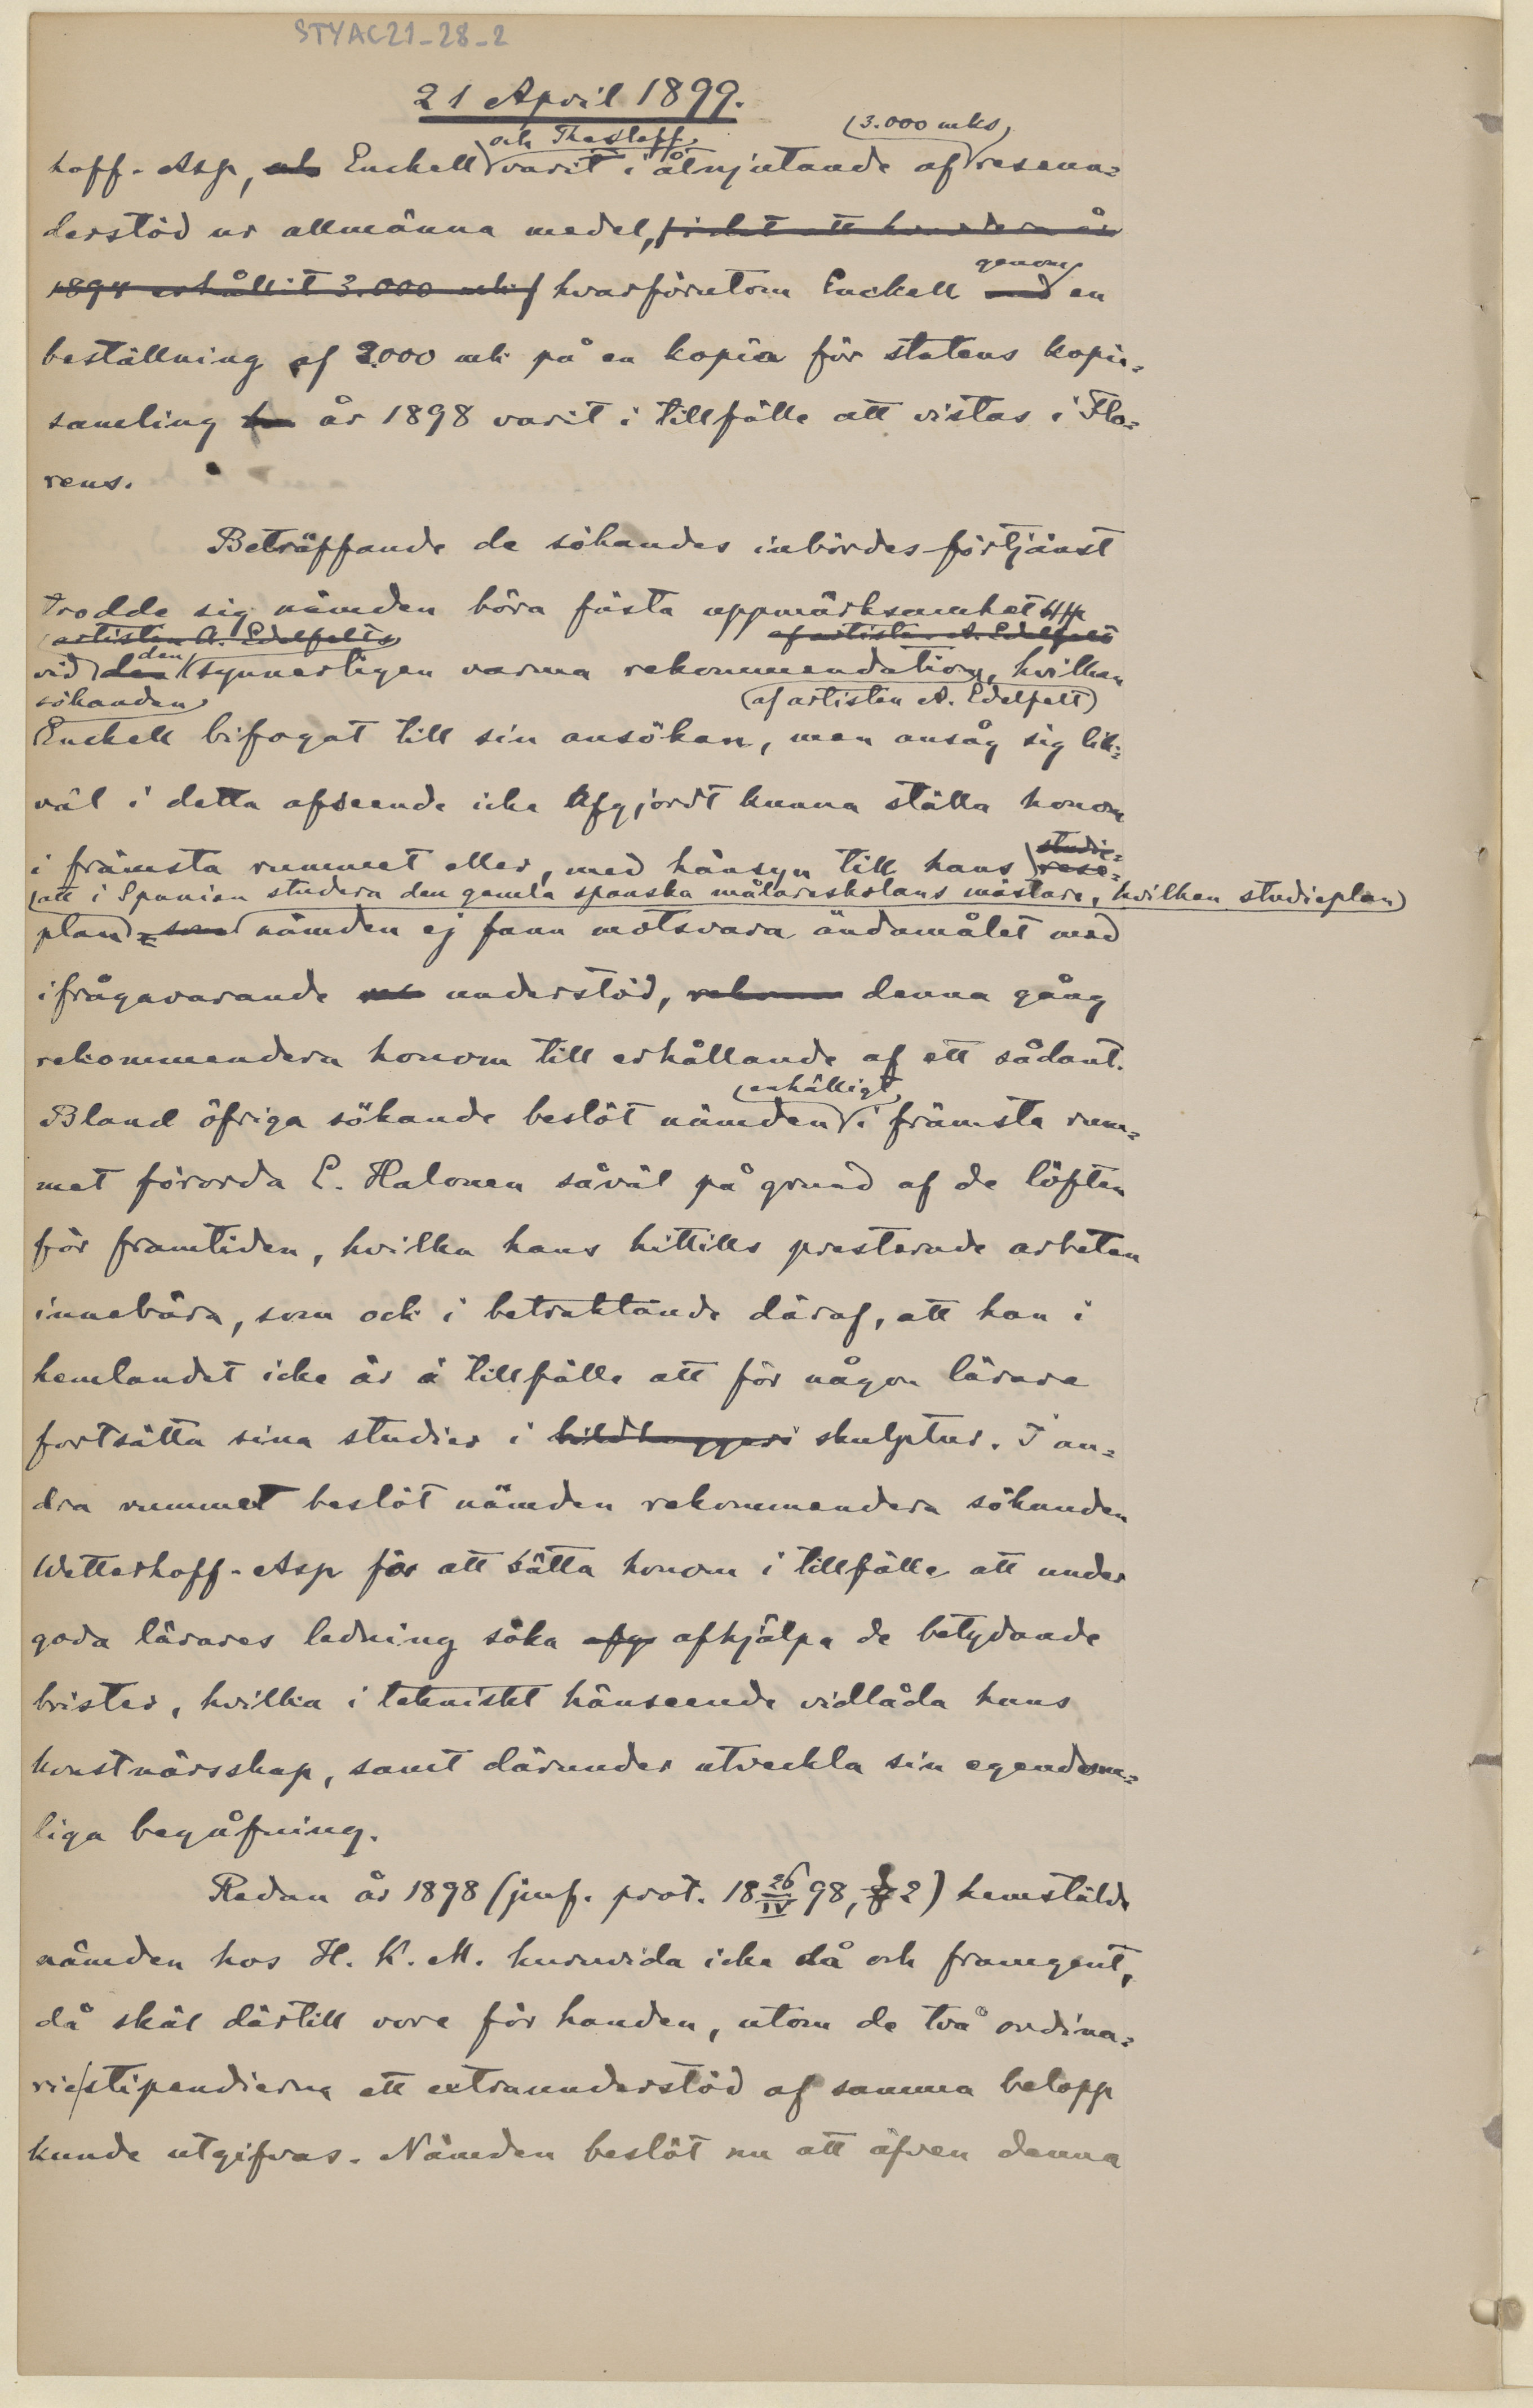 STYAC21-28-2
21 April 1899.
och Thesleff (3.000 mks)
hoff-Asp, och Enckell varit i åtnjutande af reseun=
derstöd ur allmänna medel,
1894 erhållit 3.000 mk, hvarförutom Enckell genom en
beställning af 2.000 mk på en kopia för statens kopie=
samling ha år 1898 varit i tillfälle att vistas i Flo=
rens.
Beträffande de sökandes inbördes förtjänst
trodde sig nämden böra fästa uppmärksamhet
artisten A. Edelfelts af artisten A. Edelfelt
vid den synnerligen varma rekommendation, hvilken
sökanden (af artisten A. Edelfelt)
Enckell bifogat till sin ansökan, men ansåg sig lik=
väl i detta afseende icke afgjordt kunna ställa honom
studie=
i främsta rummet eller, med hänsyn till hans rese=
(att i Spanien studera den gamla spanska målareskolans mästare, hvilken studieplan)
plan, som nämden ej fann motsvara ändamålet med
ifrågavarande res understöd, rekomm denna gång
rekommendera honom till erhållande af ett sådant.
enhälligt
Bland öfriga sökande beslöt nämden i främsta rum=
met förorda E. Halonen såväl på grund af de löften
för framtiden, hvilka hans hittills presterade arbeten
innebära, som ock i betraktande däraf, att han i
hemlandet icke är i tillfälle att för någon lärare
fortsätta sina studier i bildhuggeri skulptur. I an=
dra rummet beslöt nämden rekommendera sökanden
Wetterhoff-Asp för att sätta honom i tillfälle att under
goda lärares ledning söka afhjälpa de betydande
brister, hvilka i tekniskt hänseende vidlåda hans
konstnärsskap, samt därunder utveckla sin egendom=
liga begåfning.
Redan år 1898 (jmf. prot. 18 26/IV 98, § 2) hemstälde
nämden hos H. K. M. huruvida icke då och framgent,
då skäl därtill vore för handen, utom de två ordina=
rie stipendierna ett extraunderstöd af samma belopp
kunde utgifvas. Nämden beslöt nu att äfven denna